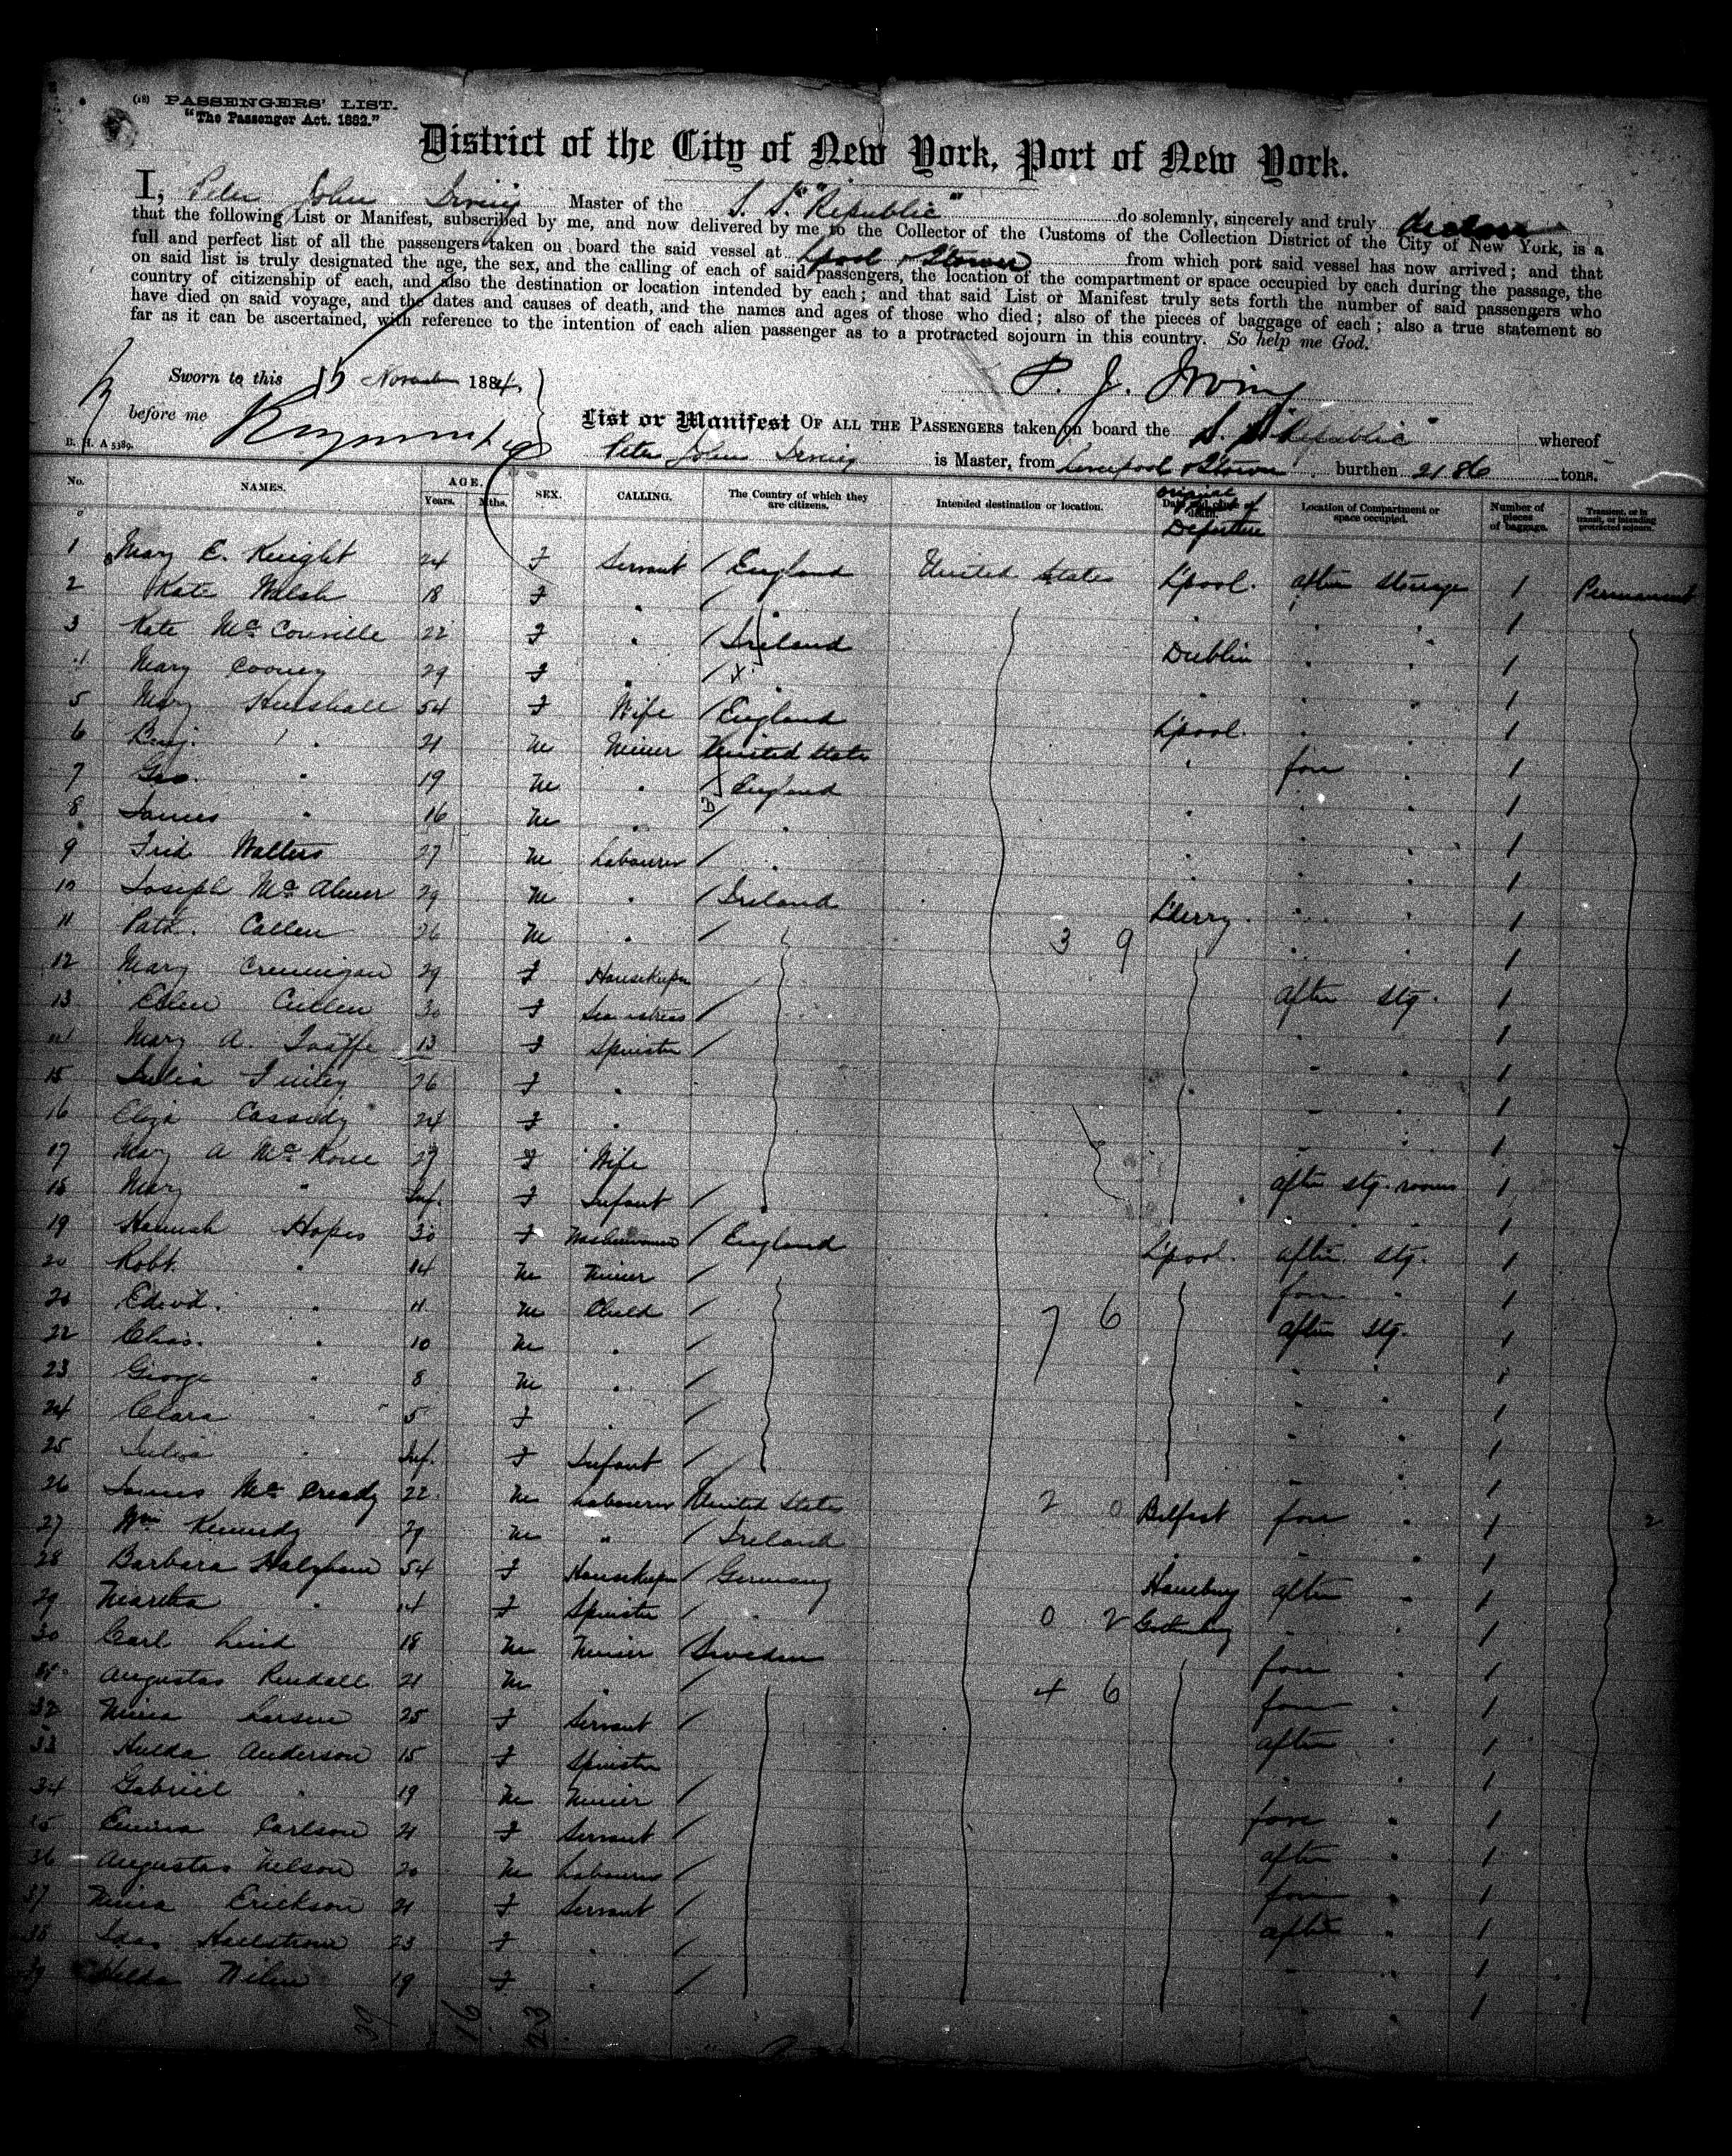 (18) PASSENGERS' LIST.
"The Passenger Act. 1882."
District of the City of New York, Port of New York.
I, Peter John Irving Master of the S. S. "Republic" do solemnly, sincerely and truly declare
that the following List or Manifest, subscribed by me, and now delivered by me to the Collector of the Customs of the Collection District of the City of New York, is a
full and perfect list of all the passengers taken on board the said vessel at Lpool & Qtown from which port said vessel has now arrived; and that
on said list is truly designated the age, the sex, and the calling of each of said passengers, the location of the compartment or space occupied by each during the passage, the
country of citizenship of each, and also the destination or location intended by each; and that said List or Manifest truly sets forth the number of said passengers who
have died on said voyage, and the dates and causes of death, and the names and ages of those who died; also of the pieces of baggage of each; also a true statement so
far as it can be ascertained, with reference to the intention of each alien passenger as to a protracted sojourn in this country. So help me God.
Sworn to this 15 November 1884, P. J. Irving
before me
B. H. A 5389.
List or Manifest OF ALL THE PASSENGERS taken on board the S. S. "Republic" whereof
Peter John Irving is Master, from Liverpool & Qtown burthen 2186 tons.
No. NAMES. AGE. Years. Mths. SEX. CALLING. The Country of which they are citizens. Intended destination or location. original Departure Location of Compartment or space occupied. Number of pieces of baggage. Transient, or in transit, or intending protracted sojourn.
1 Mary E. Knight 24 F Servant / England United States L'pool. after steerage 1 Permanent
2 Kate Walsh 18 F " / " " 1
3 Kate McConville 22 F " / Ireland Dublin " " 1
4 Mary Cooney 29 F " / " " " " 1
5 Mary Hurshall 54 F Wife / England L'pool. " " 1
6 Benj. " 21 M Miner United States " fore " 1
7 Geo. " 19 M " / England " " 1
8 James " 16 M " / " " " " 1
9 Fred Walters 27 M Labourer / " " " " 1
10 Joseph 29 M " / Ireland L'derry. " " 1
11 Patk. Callen 26 M " / 3 9 " " 1
12 Mary 29 F Housekeeper After stg. 1
13 Ellen Cullen 30 F Seamstress / " 1
14 Mary A. Taaffe 13 F Spinster / " " 1
15 Julia Finley 26 F " " " 1
16 Eliza Cassidy 24 F " " " 1
17 Mary A 29 F Wife after stg. rooms 1
18 Mary " Inf. F Infant / " " 1
19 Hannah Hopes 30 F Washerwoman / England L'pool. after stg. 1
20 Robt. " 14 M Miner / fore " 1
21 Edwd. " 11 M Child / 7 6 after stg. 1
22 Chas. " 10 M " / " " 1
23 George " 8 M " / 1
24 Clara " 5 F " / " " 1
25 Julia " Inf. F Infant / " " 1
26 James McCready 22 M Labourer United States 2 0 Belfast fore " 1 2
27 Wm Kennedy 29 M " / Ireland " " 1
28 Barbara 54 F Housekeeper / Germany Hamburg after " 1
29 Martha " 14 F Spinster / " 0 2 Gothenburg " 1
30 Carl Lind 18 M Miner Sweden fore " 1
31 Augustas Rendall 21 M " / 4 6 fore " 1
32 Mina Larsen 25 F Servant / after " 1
33 Hulda Anderson 15 F Spinster " " 1
34 Gabriel " 19 M Miner / fore " 1
35 Emma Carlson 21 F Servant / after " 1
36 Augustas Nelson 20 M Labourer / fore " 1
37 Mina Erickson 21 F Servant / after " 1
38 23 F " / " " 1
39 Hilda 19 F " / " " 1
39 16 23